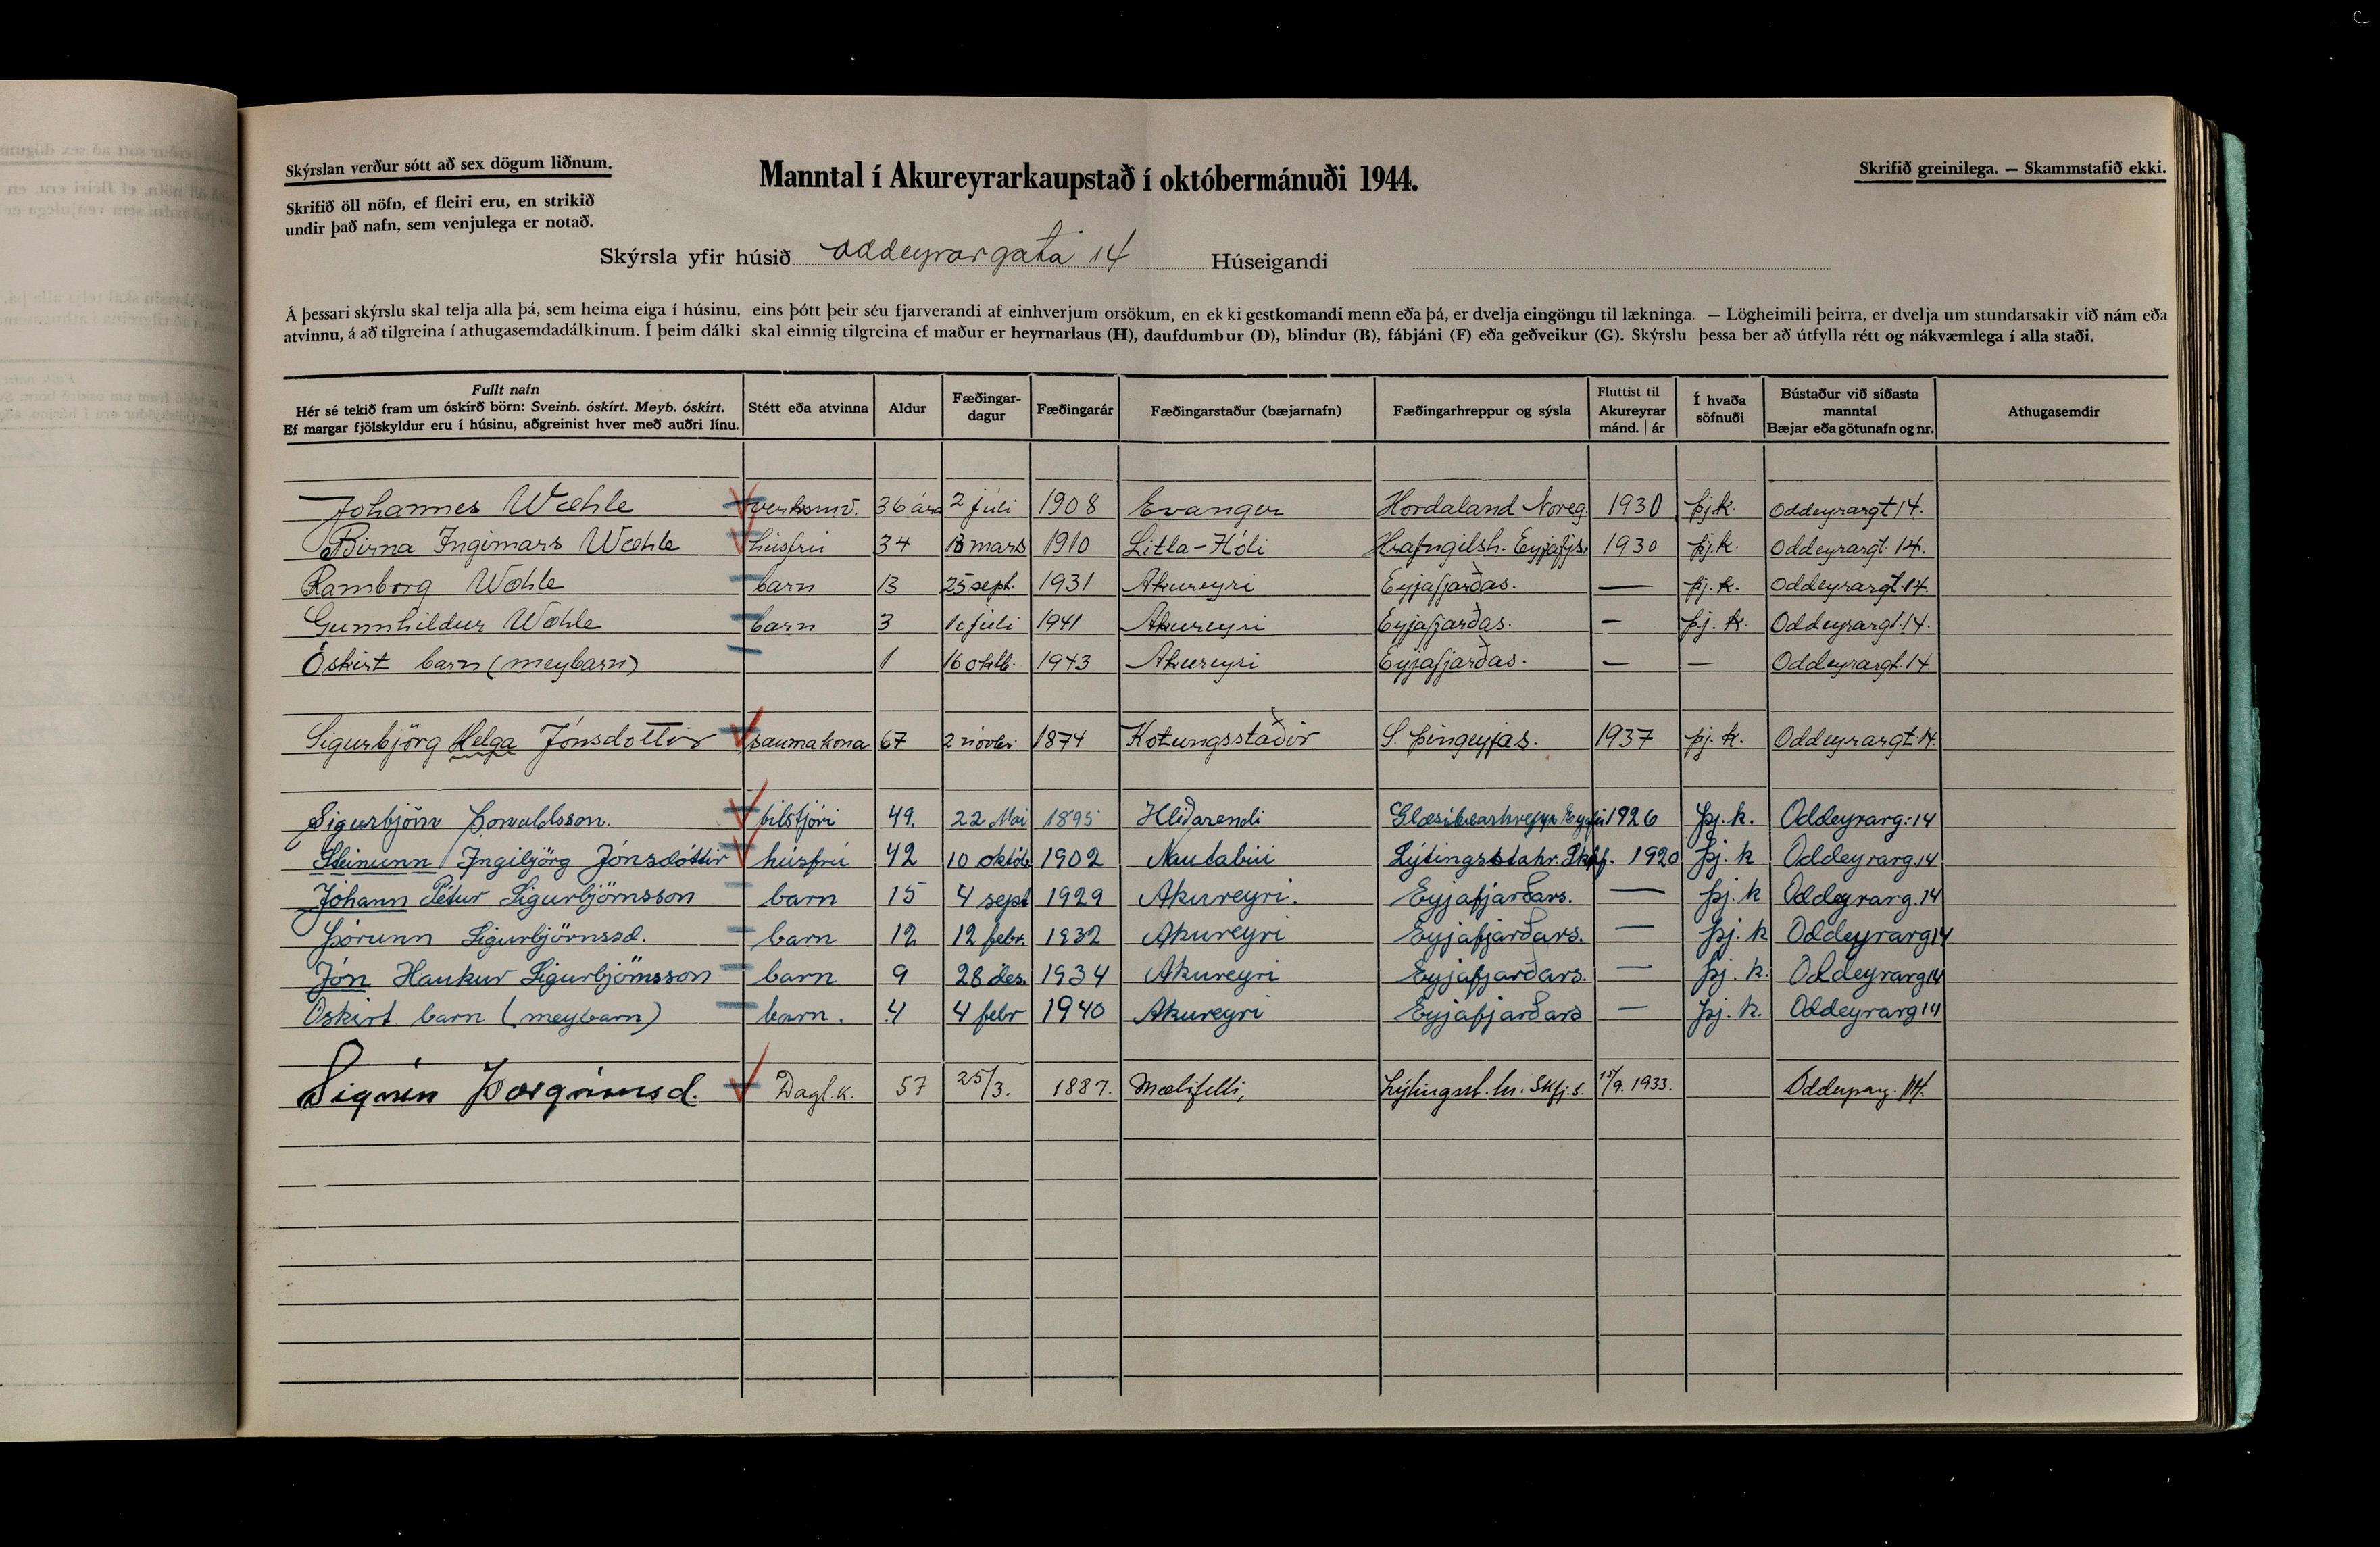 Skýrslan verður sótt að sex dögum liðnum.
Manntal í Akureyrarkaupstað í októbermánuði 1944.
Skrifið greinilega. — Skammstafið ekki.
Skrifið öll nöfn, ef fleiri eru, en strikið
undir það nafn, sem venjulega er notað.
Skýrsla yfir húsið Oddeyrargata 14 Húseigandi
Á þessari skýrslu skal telja alla þá, sem heima eiga í húsinu, eins þótt þeir séu fjarverandi af einhverjum orsökum, en ekki gestkomandi menn eða þá, er dvelja eingöngu til lækninga. — Lögheimili þeirra, er dvelja um stundarsakir við nám eða
atvinnu, á að tilgreina í athugasemdadálkinum. Í þeim dálki skal einnig tilgreina ef maður er heyrnarlaus (H), daufdumbur (D), blindur (B), fábjáni (F) eða geðveikur (G). Skýrslu þessa ber að útfylla rétt og nákvæmlega í alla staði.
Fullt nafn
Hér sé tekið fram um óskírð börn: Sveinb. óskírt. Meyb. óskírt.
Ef margar fjölskyldur eru í húsinu, aðgreinist hver með auðri línu.
Stétt eða atvinna
Aldur
Fæðingar-
dagur
Fæðingarár
Fæðingarstaður (bæjarnafn)
Fæðingarhreppur og sýsla
Fluttist til
Akureyrar
mánd. | ár
Í hvaða
söfnuði
Bústaður við síðasta
manntal
Bæjar eða götunafn og nr.
Athugasemdir
Johannes Wæhle verksmv. 36 ára 2 júli 1908 Evanger Hordaland Noreg 1930 þj.k. Oddeyrargt 14.
Birna Ingimars Wæhle húsfrú 34 13 mars 1910 Litla-Hóli Hrafngilsh. Eyjafjs. 1930 þj.k. Oddeyrargt. 14.
Ramborg Wæhle barn 13 25 sept. 1931 Akureyri Eyjafjarðas. — þj.k. Oddeyrargt. 14.
Gunnhildur Wæhle barn 3 júli 1941 Akureyri Eyjafjarðas. — þj.k. Oddeyrargt. 14.
Óskirt barn (meybarn) 1 16 oktb. 1943 Akureyri Eyjafjarðas. — — Oddeyrargt. 14.
Sigurbjörg Helga Jónsdottir saumakona 67 2 nóvbr. 1874 Kotungsstaðir S. þingeyjas. 1937 þj.k. Oddeyrargt 14.
Sigurbjörn Þorvaldsson. bilstjóri 49. 22 Mai 1895 Hliðarendi Glæsibæarhrepp 1926 Þj.k. Oddeyrarg: 14
Steinunn Ingibjörg Jónsdóttir húsfrú 42 10 októb. 1902 Nautabúi Lýtingsstahr. Skf. 1920 Þj.k Oddeyrarg. 14
Jóhann Pétur Sigurbjörnsson barn 15 4 sept 1929 Akureyri. Eyjafjarðars. — Þj.k Oddeyrarg. 14
Þórunn Sigurbjörnssd. barn 12 12 febr. 1932 Akureyri Eyjafjarðars. — Þj.k Oddeyrarg 14
Jón Haukur Sigurbjörnsson barn 9 28 des. 1934 Akureyri Eyjafjarðars. — Þj.k. Oddeyrarg 14
Óskirt barn (meybarn) barn. 4 4 febr 1940 Akureyri Eyjafjarðars — Þj.k. Oddeyrarg 14
Sigrún Þorgrímsd. Dagl.k. 57 25/3. 1887. Mælifelli, Lýtingsst. hr. Skfj.s. 15/9. 1933. Oddeyrarg. 14.